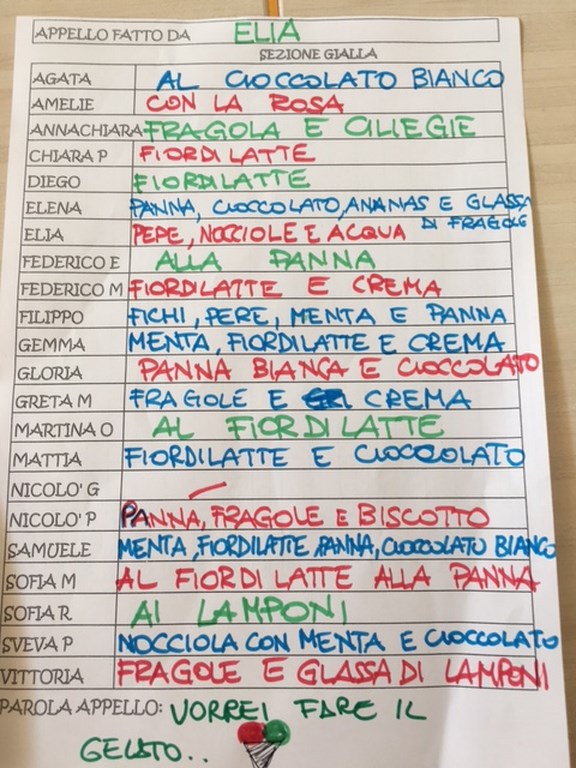 APPELLO FATTO DA ELIA
SEZIONE GIALLA
AGATA AL CIOCCOLATO BIANCO
AMELIE CON LA ROSA
ANNACHIARA FRAGOLA E CILIEGIE
CHIARA P FIORDILATTE
DIEGO FIORDILATTE
ELENA PANNA, CIOCCOLATO, ANANAS E GLASSA
DI FRAGOLE
ELIA PEPE, NOCCIOLE E ACQUA
FEDERICO E ALLA PANNA
FEDERICO M FIORDILATTE E CREMA
FILIPPO FICHI, PERE, MENTA E PANNA
GEMMA MENTA, FIORDILATTE E CREMA
GLORIA PANNA BIANCA E CIOCCOLATO
GRETA M FRAGOLE E CREMA
MARTINA O AL FIORDILATTE
MATTIA FIORDILATTE E CIOCCOLATO
NICOLO' G
NICOLO' P PANNA, FRAGOLE E BISCOTTO
SAMUELE MENTA, FIORDILATTE, PANNA, CIOCCOLATO BIANCO
SOFIA M AL FIORDILATTE ALLA PANNA
SOFIA R AI LAMPONI
SVEVA P NOCCIOLA CON MENTA E CIOCCOLATO
VITTORIA FRAGOLE E GLASSA DI LAMPONI
PAROLA APPELLO: VORREI FARE IL
GELATO..